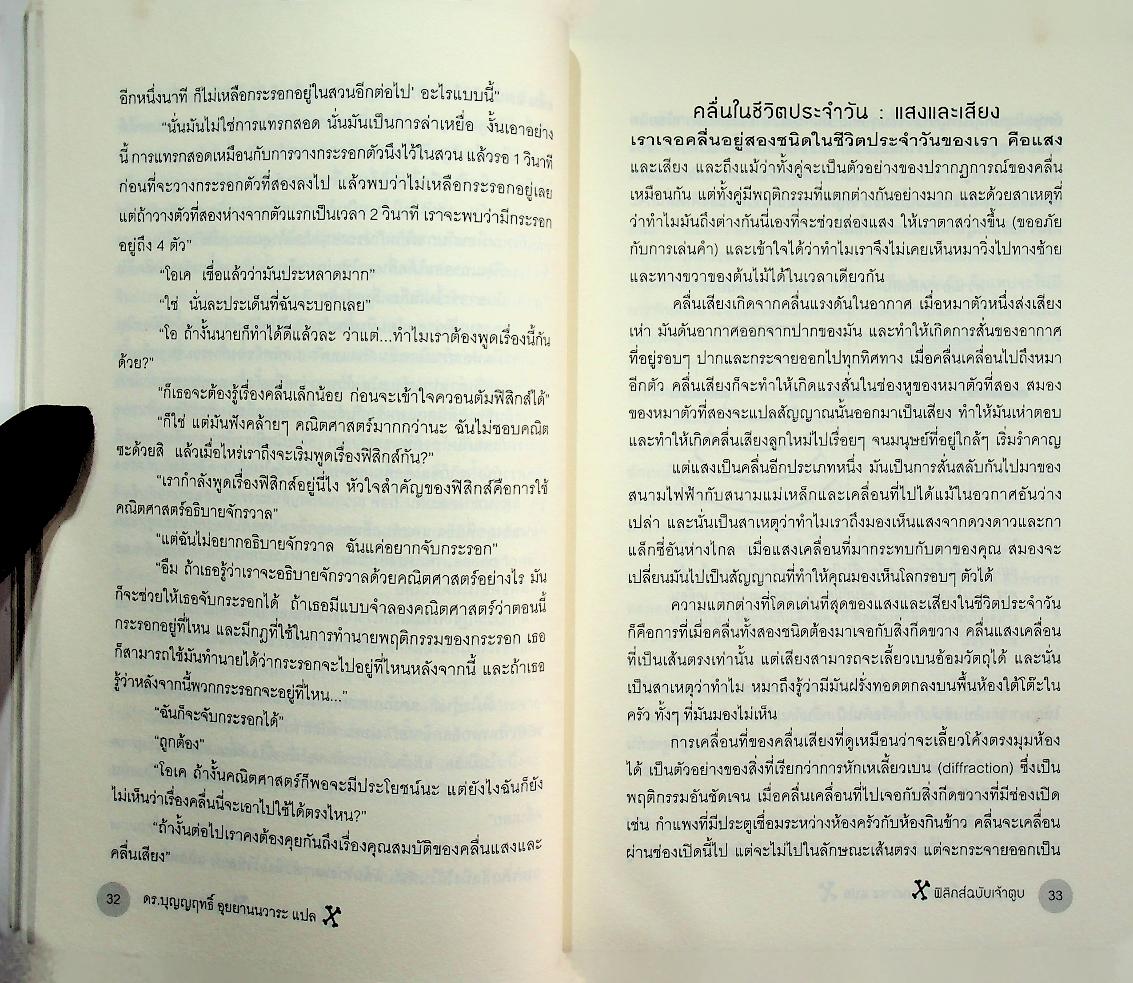 อีกหนึ่งนาที ก็ไม่เหลือกระรอกอยู่ในสวนอีกต่อไป' อะไรแบบนี้"
"นั่นมันไม่ใช่การแทรกสอด นั่นมันเป็นการล่าเหยื่อ งั้นเอาอย่าง
นี้ การแทรกสอดเหมือนกับการวางกระรอกตัวนึงไว้ในสวน แล้วรอ 1 วินาที
ก่อนที่จะวางกระรอกตัวที่สองลงไป แล้วพบว่าไม่เหลือกระรอกอยู่เลย
แต่ถ้าวางตัวที่สองห่างจากตัวแรกเป็นเวลา 2 วินาที เราจะพบว่ามีกระรอก
อยู่ถึง 4 ตัว"
"โอเค เชื่อแล้วว่ามันประหลาดมาก"
"ใช่ นั่นละประเด็นที่ฉันจะบอกเลย"
"โอ ถ้างั้นนายก็ทำได้ดีแล้วละ ว่าแต่...ทำไมเราต้องพูดเรื่องนี้กัน
ด้วย?"
"ก็เธอจะต้องรู้เรื่องคลื่นเล็กน้อย ก่อนจะเข้าใจควอนตัมฟิสิกส์ได้"
"ก็ใช่ แต่มันฟังคล้ายๆ คณิตศาสตร์มากกว่านะ ฉันไม่ชอบคณิต
ซะด้วยสิ แล้วเมื่อไหร่เราถึงจะเริ่มพูดเรื่องฟิสิกส์กัน?"
"เรากำลังพูดเรื่องฟิสิกส์อยู่นี่ไง หัวใจสำคัญของฟิสิกส์คือการใช้
คณิตศาสตร์อธิบายจักรวาล"
"แต่ฉันไม่อยากอธิบายจักรวาล ฉันแค่อยากจับกระรอก"
"อืม ถ้าเธอรู้ว่าเราจะอธิบายจักรวาลด้วยคณิตศาสตร์อย่างไร มัน
ก็จะช่วยให้เธอจับกระรอกได้ ถ้าเธอมีแบบจำลองคณิตศาสตร์ว่าตอนนี้
กระรอกอยู่ที่ไหน และมีกฎที่ใช้ในการทำนายพฤติกรรมของกระรอก เธอ
ก็สามารถใช้มันทำนายได้ว่ากระรอกจะไปอยู่ที่ไหนหลังจากนี้ และถ้าเธอ
รู้ว่าหลังจากนี้พวกกระรอกจะอยู่ที่ไหน..."
"ฉันก็จะจับกระรอกได้"
"ถูกต้อง"
"โอเค ถ้างั้นคณิตศาสตร์ก็พอจะมีประโยชน์นะ แต่ยังไงฉันก็ยัง
ไม่เห็นว่าเรื่องคลื่นนี่จะเอาไปใช้ได้ตรงไหน?"
"ถ้างั้นต่อไปเราคงต้องคุยกันถึงเรื่องคุณสมบัติของคลื่นแสงและ
คลื่นเสียง"
32 ดร.บุญญฤทธิ์ อุยยานนวาระ แปล
คลื่นในชีวิตประจำวัน : แสงและเสียง
เราเจอคลื่นอยู่สองชนิดในชีวิตประจำวันของเรา คือแสง
และเสียง และถึงแม้ว่าทั้งคู่จะเป็นตัวอย่างของปรากฏการณ์ของคลื่น
เหมือนกัน แต่ทั้งคู่มีพฤติกรรมที่แตกต่างกันอย่างมาก และด้วยสาเหตุที่
ว่าทำไมมันถึงต่างกันนี่เองที่จะช่วยส่องแสง ให้เราตาสว่างขึ้น (ขออภัย
กับการเล่นคำ) และเข้าใจได้ว่าทำไมเราจึงไม่เคยเห็นหมาวิ่งไปทางซ้าย
และทางขวาของต้นไม้ได้ในเวลาเดียวกัน
คลื่นเสียงเกิดจากคลื่นแรงดันในอากาศ เมื่อหมาตัวหนึ่งส่งเสียง
เห่า มันดันอากาศออกจากปากของมัน และทำให้เกิดการสั่นของอากาศ
ที่อยู่รอบๆ ปากและกระจายออกไปทุกทิศทาง เมื่อคลื่นเคลื่อนไปถึงหมา
อีกตัว คลื่นเสียงก็จะทำให้เกิดแรงสั่นในช่องหูของหมาตัวที่สอง สมอง
ของหมาตัวที่สองจะแปลสัญญาณนั้นออกมาเป็นเสียง ทำให้มันเห่าตอบ
และทำให้เกิดคลื่นเสียงลูกใหม่ไปเรื่อยๆ จนมนุษย์ที่อยู่ใกล้ๆ เริ่มรำคาญ
แต่แสงเป็นคลื่นอีกประเภทหนึ่ง มันเป็นการสั่นสลับกันไปมาของ
สนามไฟฟ้ากับสนามแม่เหล็กและเคลื่อนที่ไปได้แม้ในอวกาศอันว่าง
เปล่า และนั่นเป็นสาเหตุว่าทำไมเราถึงมองเห็นแสงจากดวงดาวและกา
แล็กซี่อันห่างไกล เมื่อแสงเคลื่อนที่มากระทบกับตาของคุณ สมองจะ
เปลี่ยนมันไปเป็นสัญญาณที่ทำให้คุณมองเห็นโลกรอบๆ ตัวได้
ความแตกต่างที่โดดเด่นที่สุดของแสงและเสียงในชีวิตประจำวัน
ก็คือการที่เมื่อคลื่นทั้งสองชนิดต้องมาเจอกับสิ่งกีดขวาง คลื่นแสงเคลื่อน
ที่เป็นเส้นตรงเท่านั้น แต่เสียงสามารถจะเลี้ยวเบนอ้อมวัตถุได้ และนั่น
เป็นสาเหตุว่าทำไม หมาถึงรู้ว่ามีมันฝรั่งทอดตกลงบนพื้นห้องใต้โต๊ะใน
ครัว ทั้งๆ ที่มันมองไม่เห็น
การเคลื่อนที่ของคลื่นเสียงที่ดูเหมือนว่าจะเลี้ยวโค้งตรงมุมห้อง
ได้ เป็นตัวอย่างของสิ่งที่เรียกว่าการหักเหเลี้ยวเบน (diffraction) ซึ่งเป็น
พฤติกรรมอันชัดเจน เมื่อคลื่นเคลื่อนที่ไปเจอกับสิ่งกีดขวางที่มีช่องเปิด
เช่น กำแพงที่มีประตูเชื่อมระหว่างห้องครัวกับห้องกินข้าว คลื่นจะเคลื่อน
ผ่านช่องเปิดนี้ไป แต่จะไม่ไปในลักษณะเส้นตรง แต่จะกระจายออกเป็น
ฟิสิกส์ฉบับเจ้าตูบ 33